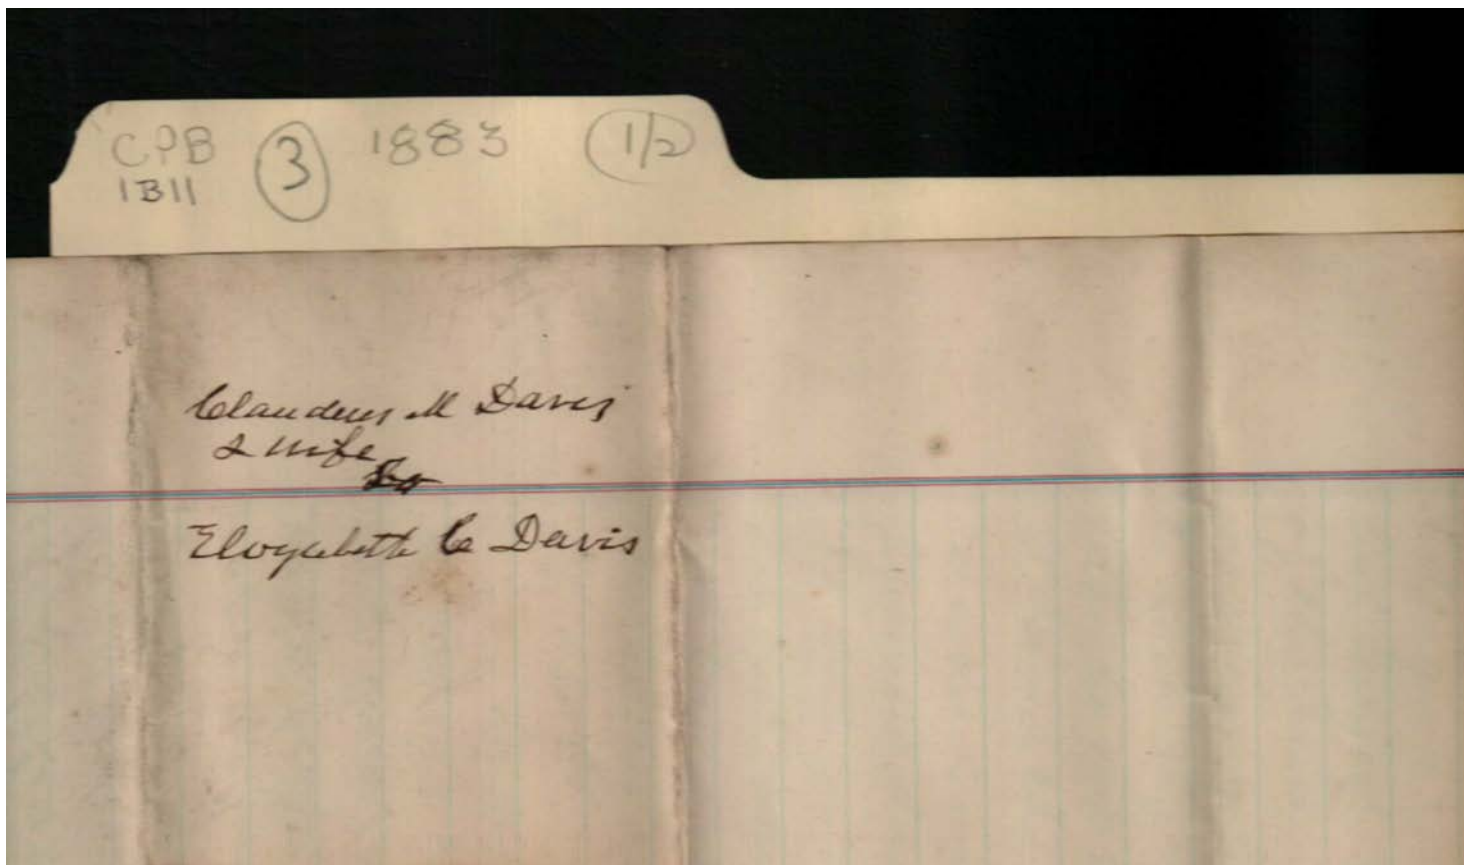 CPB 3 1883 1/2
1B11
Claudeus M Davis
& wife
to
Elizabeth C Davis